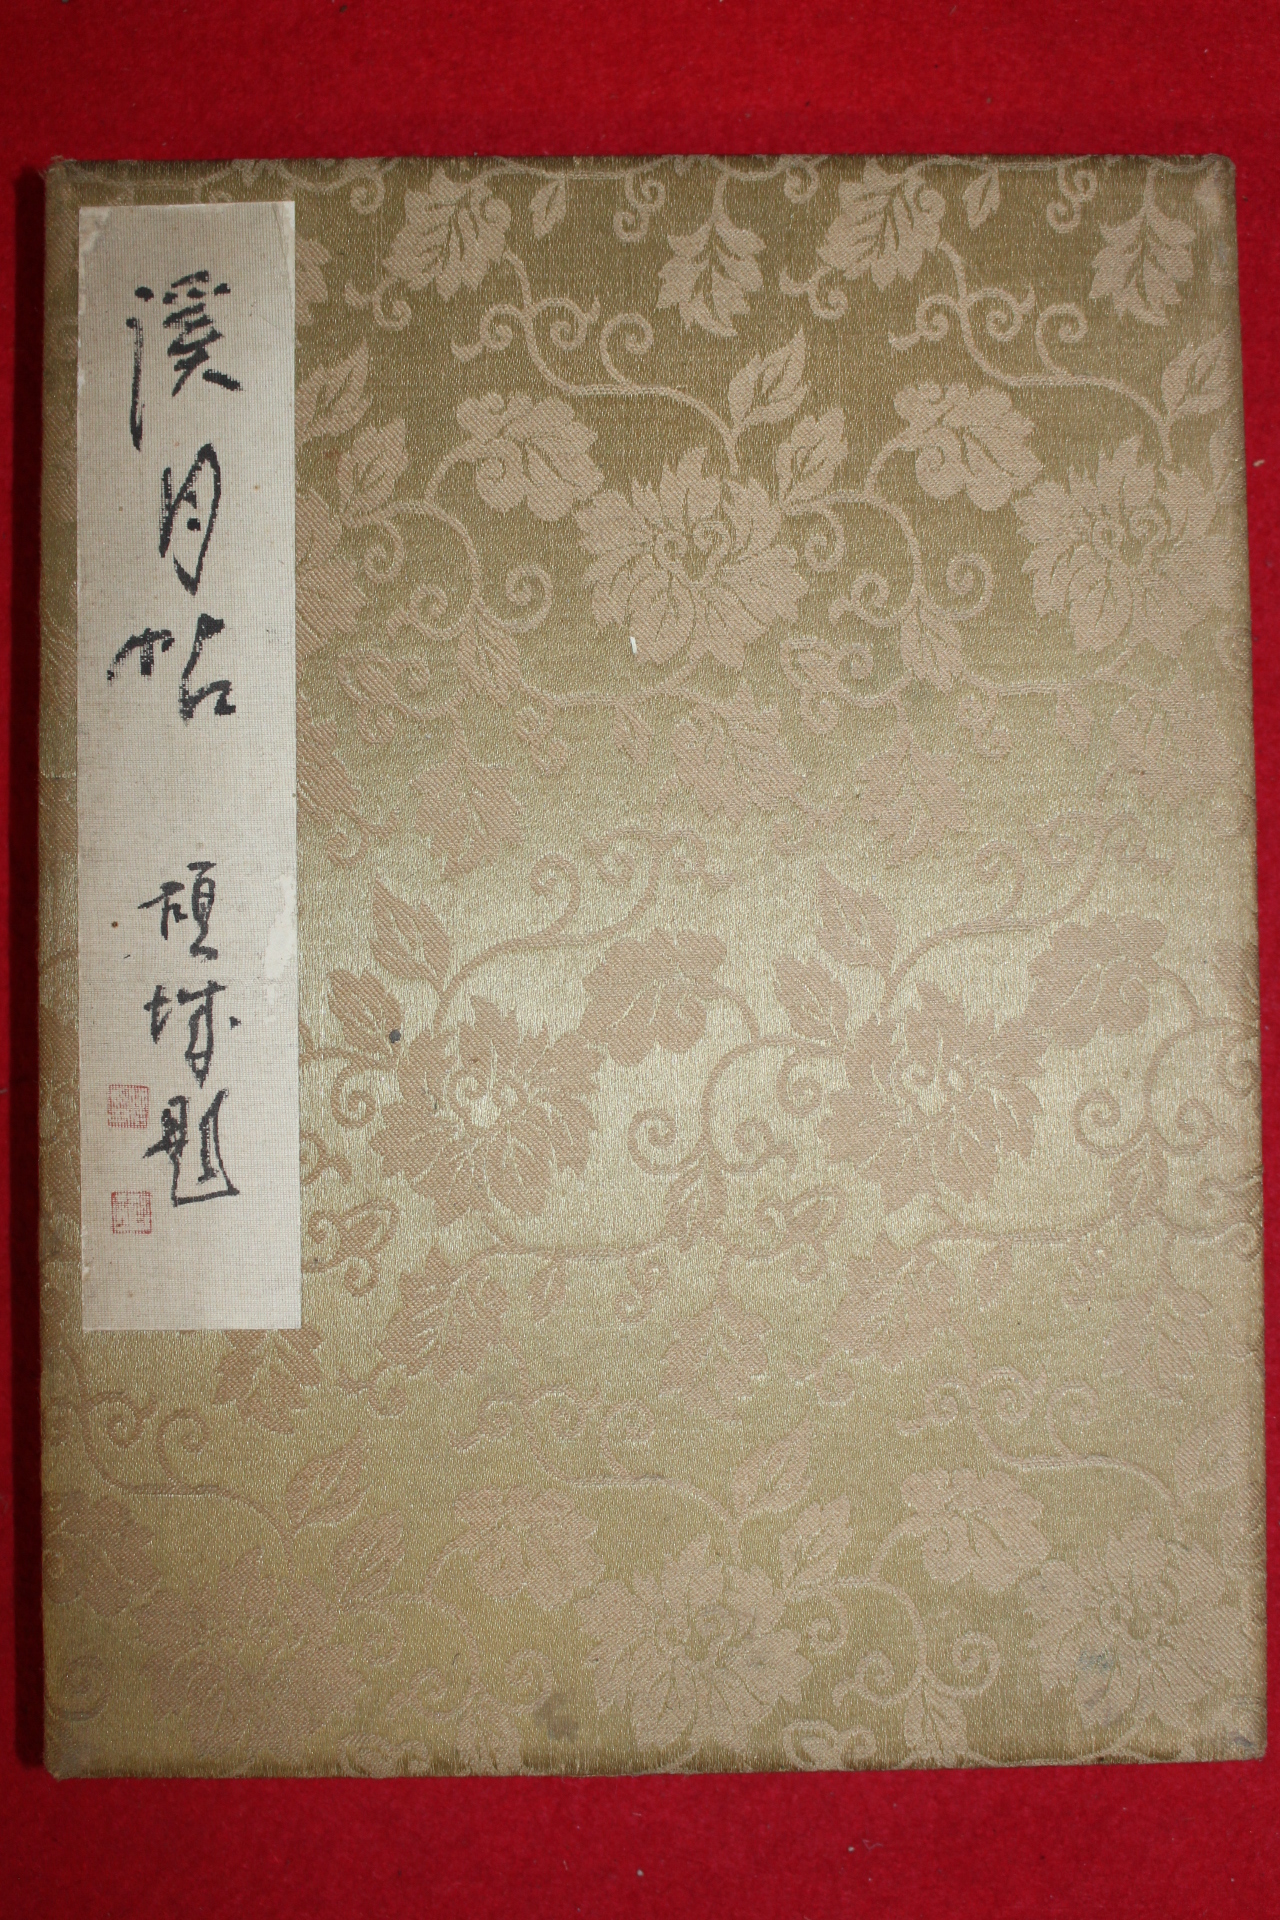 溪月帖
碩城題